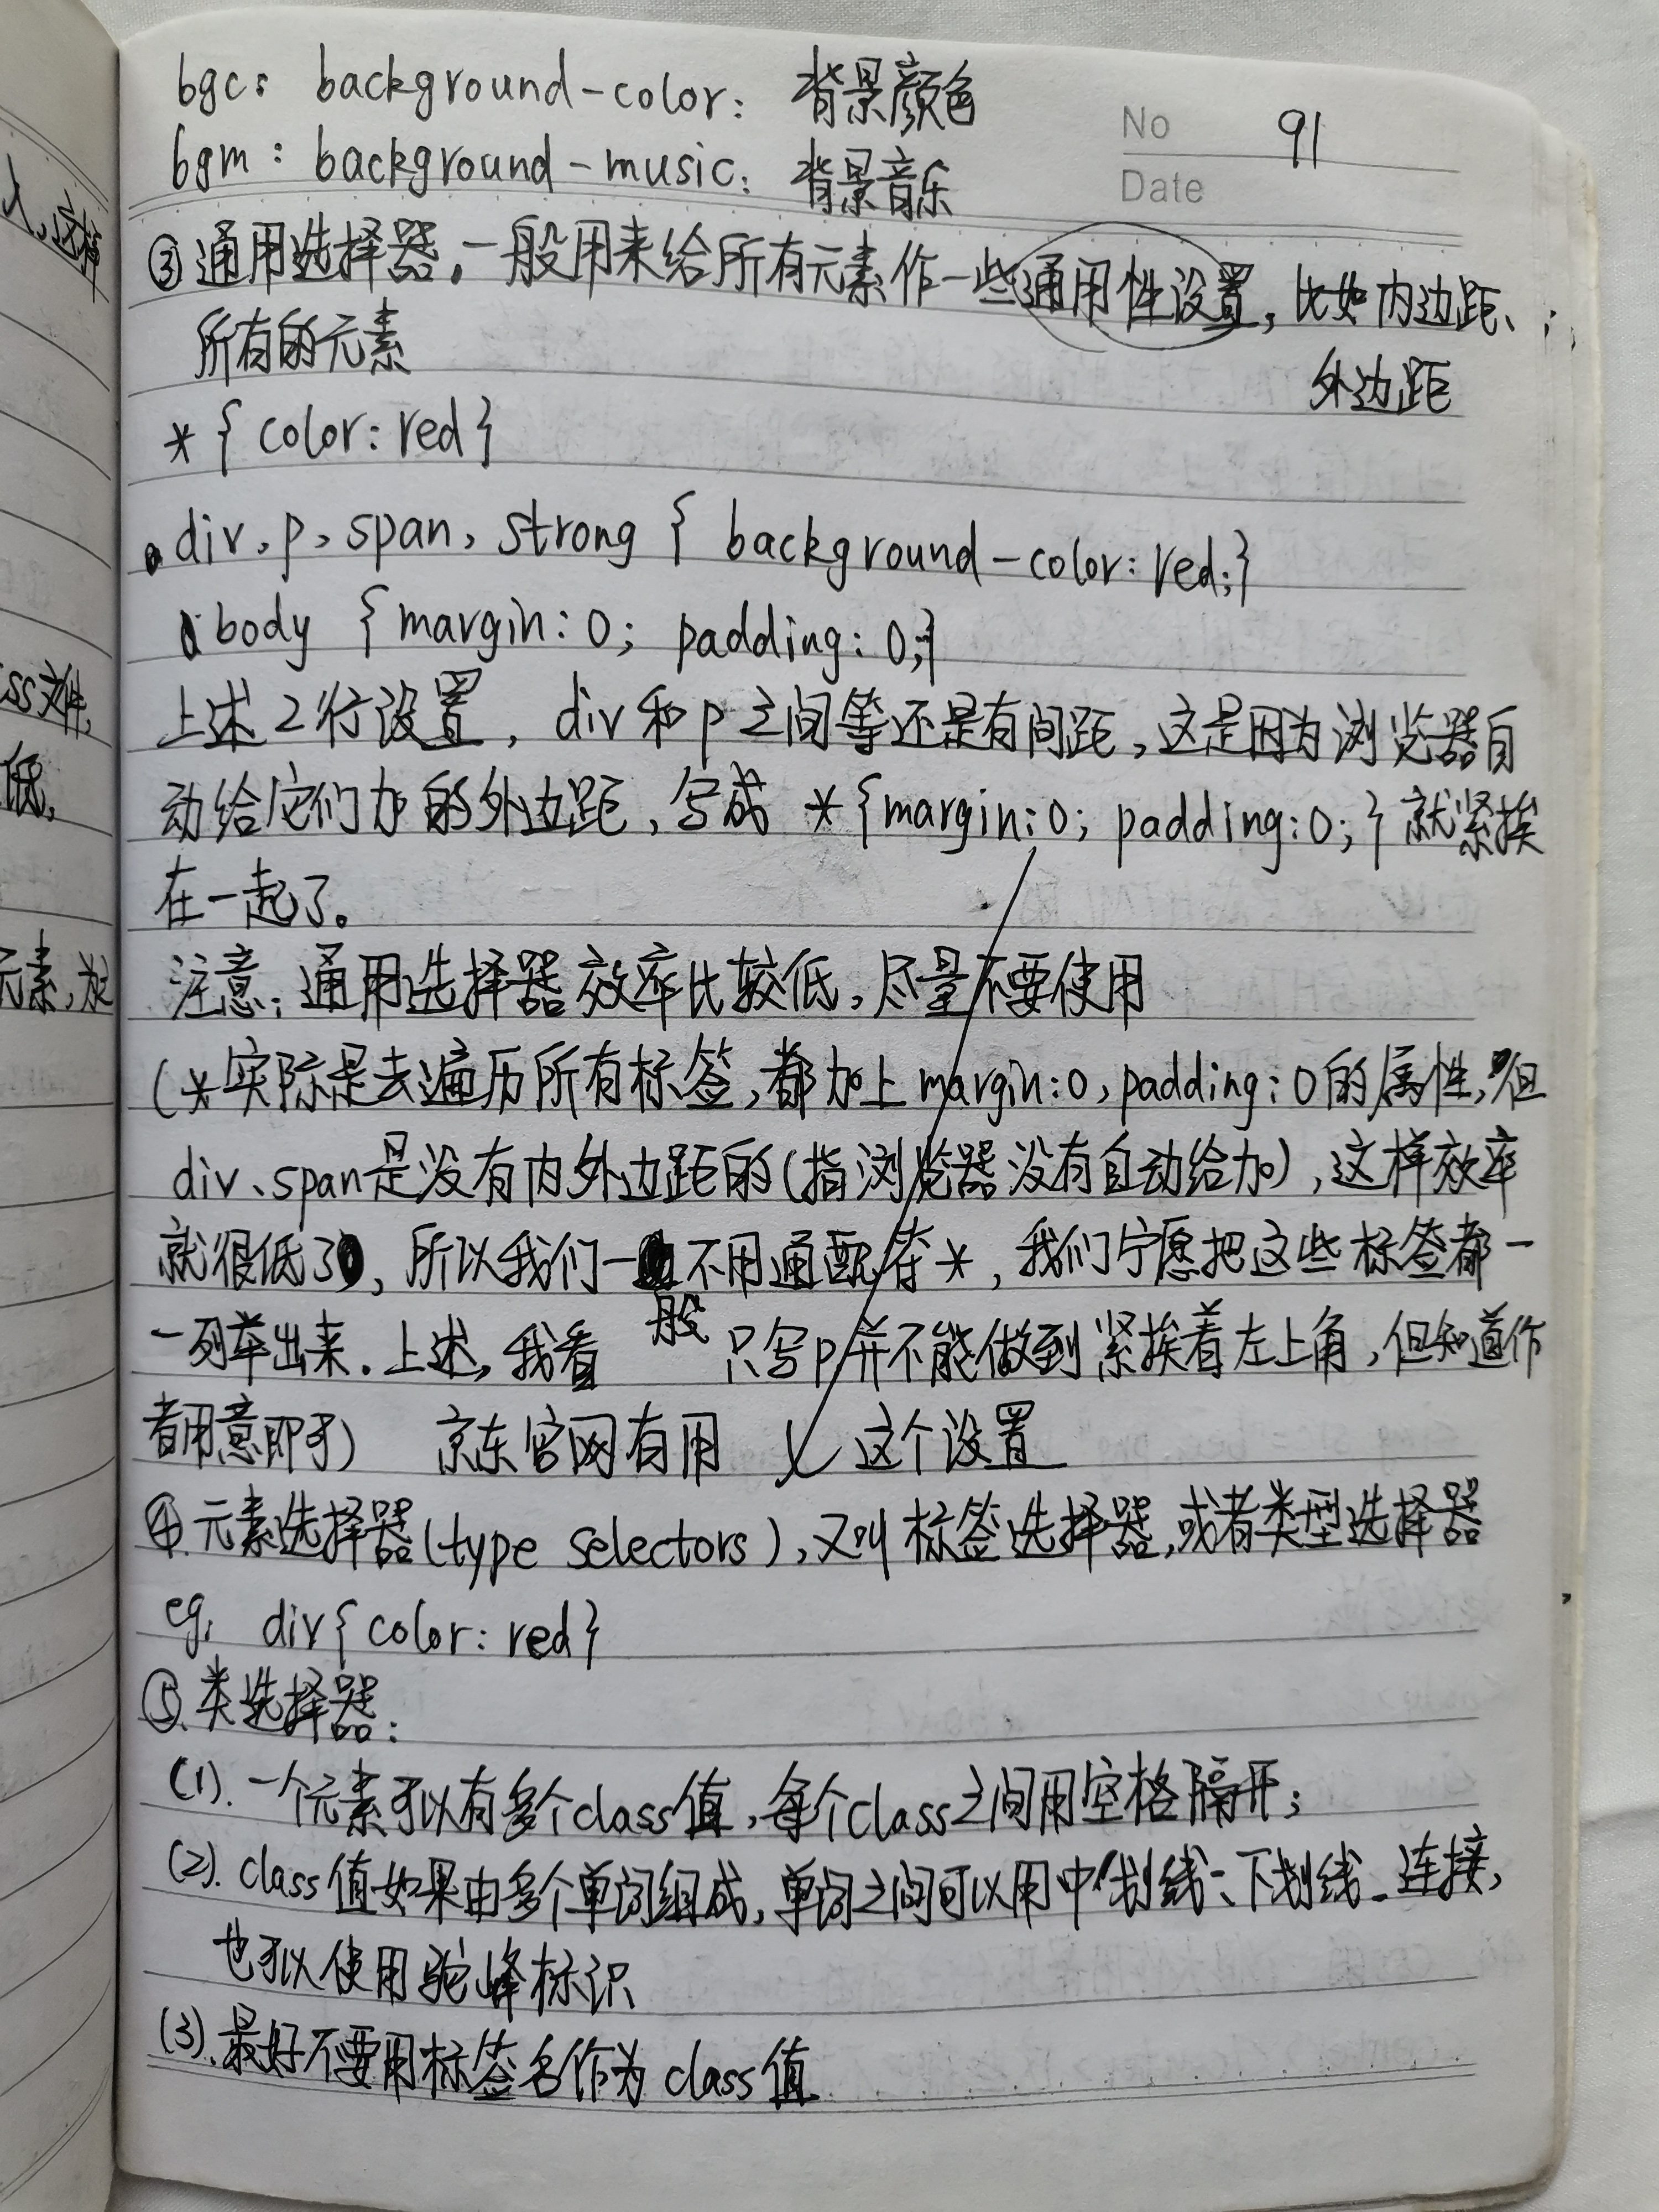 bgc: background-color: 背景颜色
No 91
bgm: background-music: 背景音乐
Date
③通用选择器,一般用来给所有元素作一些通用性设置,比如内边距、
所有的元素
外边距
*{ color: red}
div, p, span, strong { background-color: red;}
body { margin: 0; padding: 0;}
上述2行设置, div和p之间等还是有间距,这是因为浏览器自
动给它们加的外边距,写成 *{margin:0; padding:0;}就紧挨
在一起了。
注意:通用选择器效率比较低,尽量不要使用
(*实际是去遍历所有标签,都加上margin:0, padding:0的属性,但
div、span是没有内外边距的(指浏览器没有自动给加),这样效率
就很低了,所以我们一般不用通配符*,我们宁愿把这些标签都一
一列举出来.上述,我看 只写p并不能做到紧挨着左上角,但知道作
者用意即可) 京东官网有用 这个设置
④元素选择器(type selectors),又叫标签选择器,或者类型选择器
eg: div{ color: red}
⑤.类选择器:
(1).一个元素可以有多个class值,每个class之间用空格隔开;
(2).class值如果由多个单词组成,单词之间可以用中划线-、下划线_连接,
也可以使用驼峰标识
(3).最好不要用标签名作为class值
人,这样
ss文件,
低,
元素,放